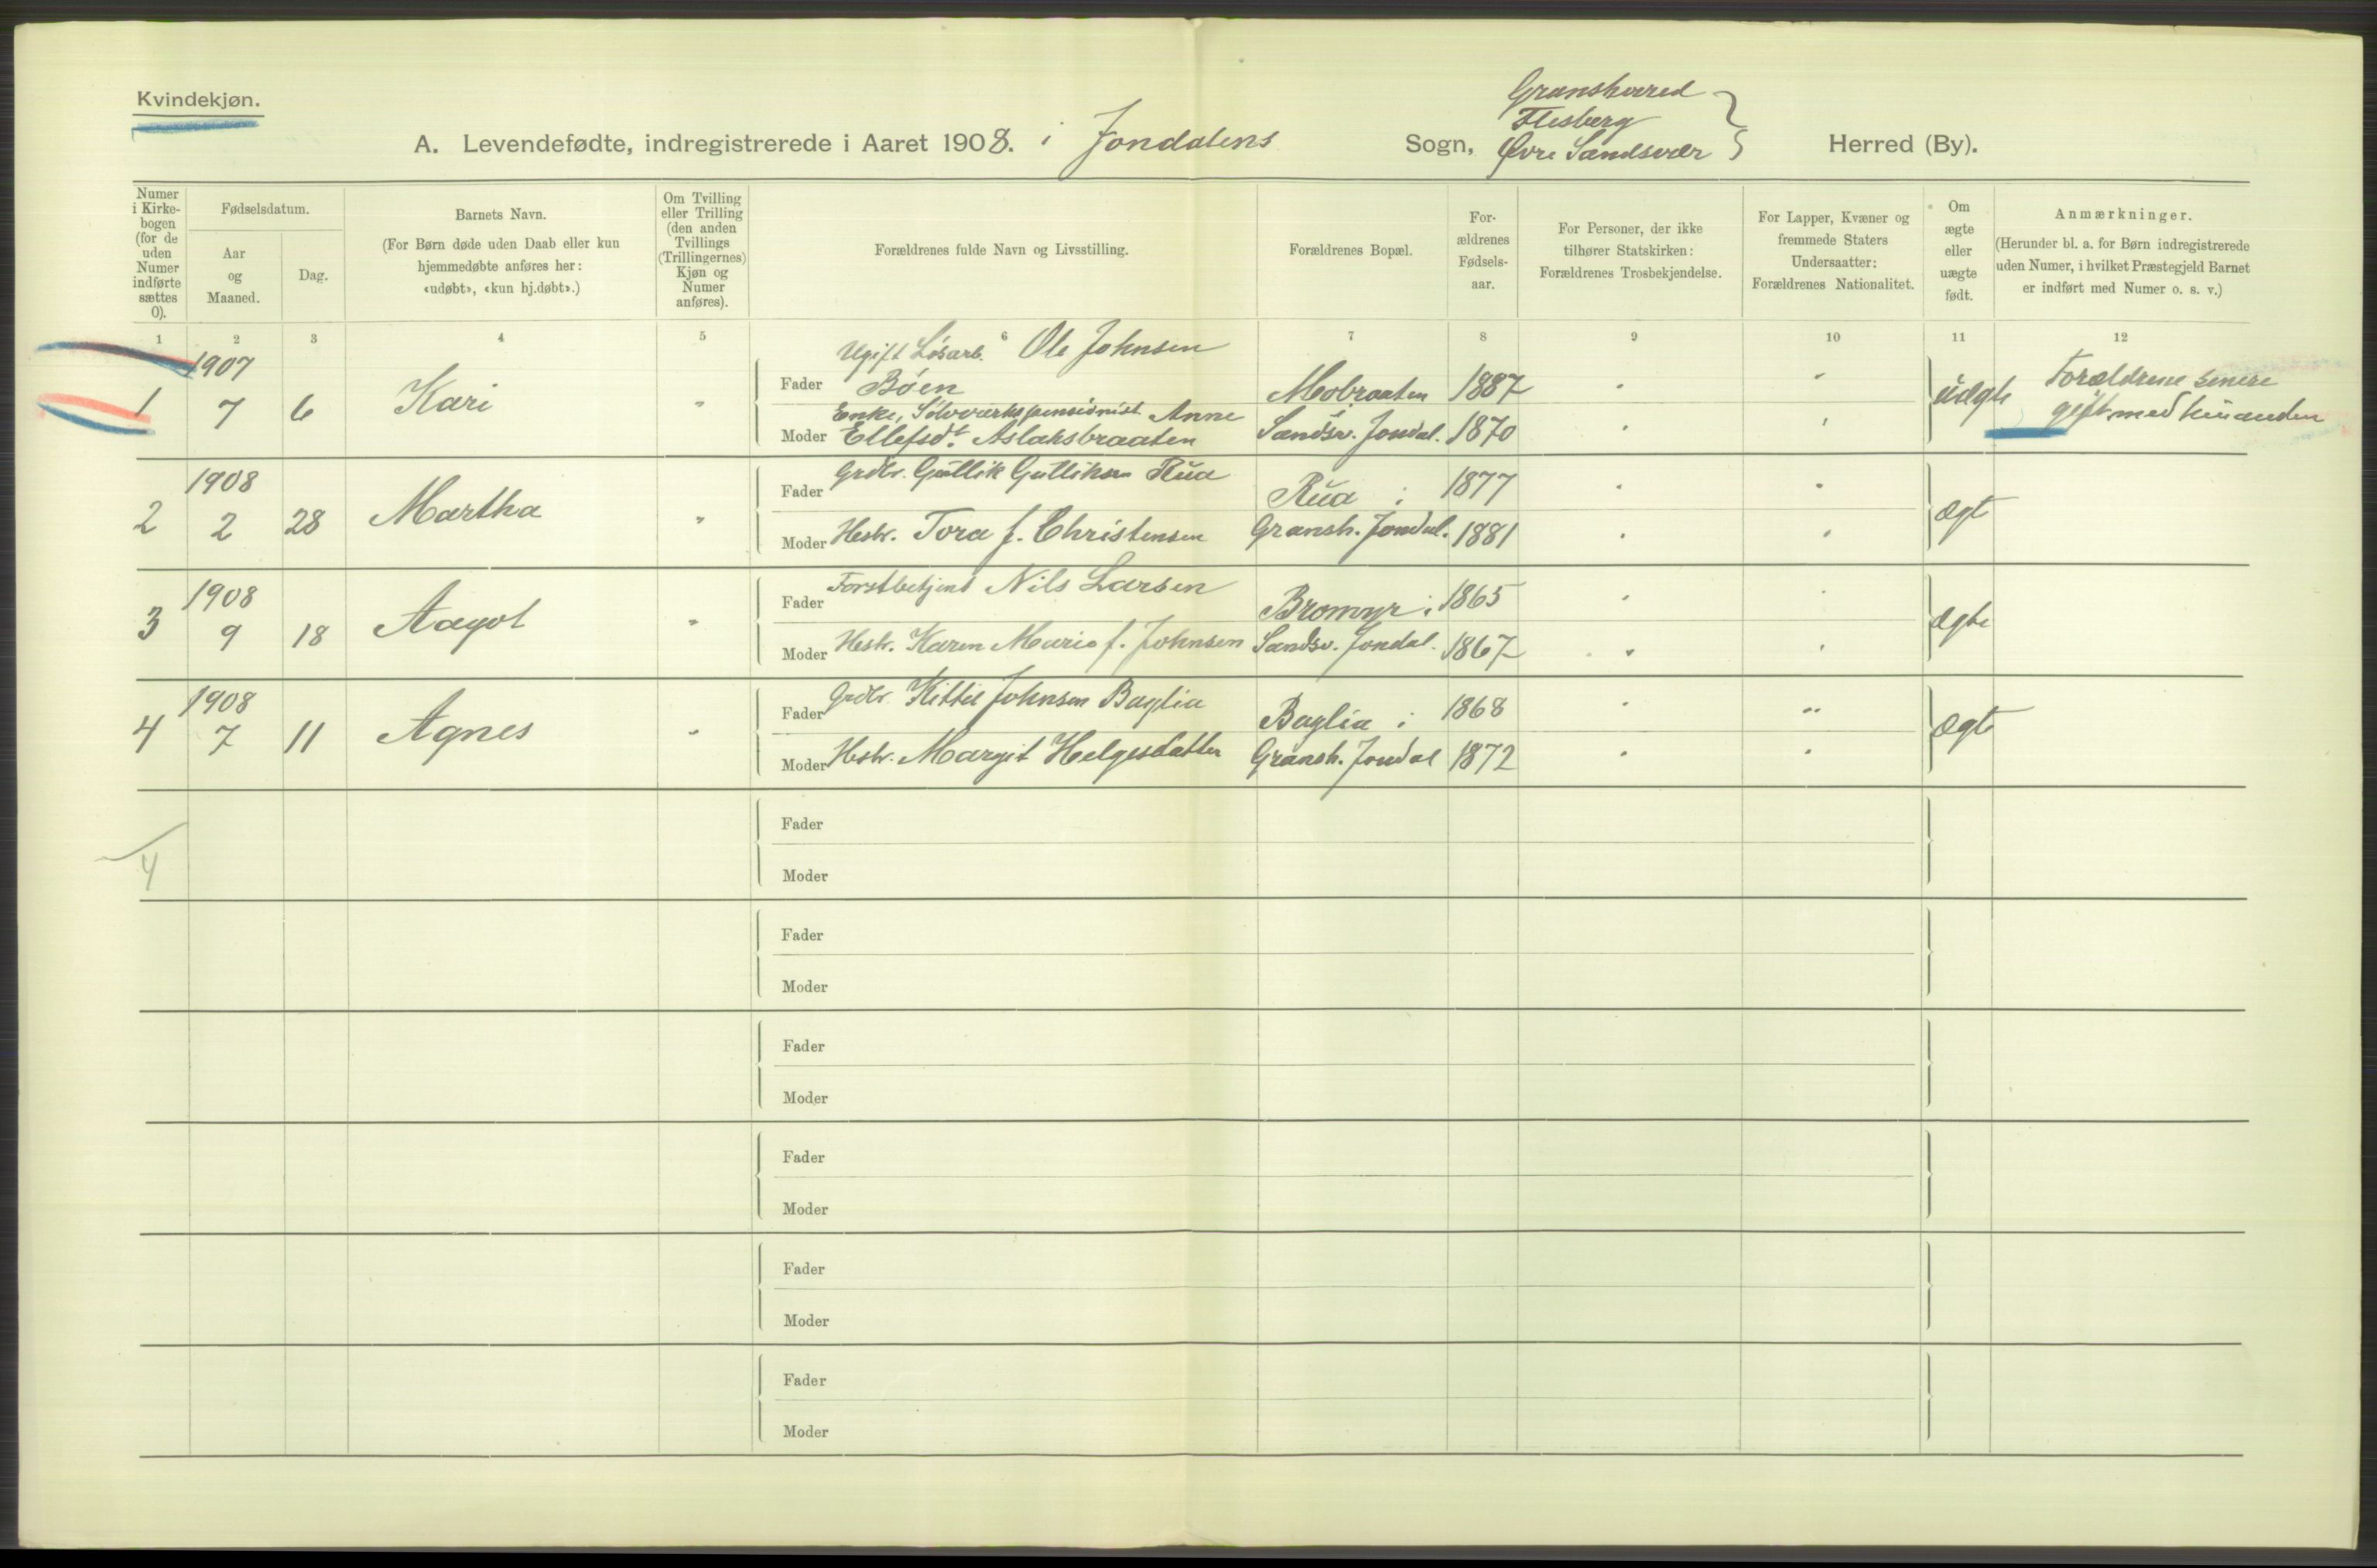 Kvindekjøn.
A. Levendefødte, indregistrerede i Aaret 1908. i Jondalens Sogn,
Gransherred
Flesberg
Øvre Sandsvær
Herred (By).
Numer i Kirkebogen (for de uden Numer indførte sættes 0).
Fødselsdatum.
Aar og Maaned.
Dag.
Barnets Navn.
(For Børn døde uden Daab eller kun hjemmedøbte anføres her: «udøbt», «kun hj.døbt».)
Om Tvilling eller Trilling (den anden Tvillings (Trillingernes) Kjøn og Numer anføres).
Forældrenes fulde Navn og Livsstilling.
Forældrenes Bopæl.
For-ældrenes Fødsels-aar.
For Personer, der ikke tilhører Statskirken: Forældrenes Trosbekjendelse.
For Lapper, Kvæner og fremmede Staters Undersaatter: Forældrenes Nationalitet.
Om ægte eller uægte født.
Anmærkninger.
(Herunder bl. a. for Børn indregistrerede uden Numer, i hvilket Præstegjeld Barnet er indført med Numer o. s. v.)
1 2 3 4 5 6 7 8 9 10 11 12
1 1907 7 6 Kari "
Ugift Løsarb. Ole Johnsen
Fader Bøen Mobraaten 1887 " "
Enke, Sølvverkspensionist Anne
Moder Ellefsdt. Aslaksbraaten Sandsv. Jondal. 1870 " "
uægte Forældrene senere
gift med hinanden
2 1908 2 28 Martha "
Fader Grdbr. Gullik Gulliksen Rua Rua i 1877 " "
Moder Hustr. Tora f. Christensen Gransh. Jondal. 1881 " "
ægt
3 1908 9 18 Aagot "
Fader Forstbetjent Nils Larsen Bromyr i 1865 " "
Moder Hustr. Karen Marie f. Johnsen Sandsv. Jondal. 1867 " "
ægte
4 1908 7 11 Agnes "
Fader Grdbr. Kittil Johnsen Baglia Baglia i 1868 " "
Moder Hustr. Margit Helgesdatter Gransh. Jondal 1872 " "
ægte
4
Fader
Moder
Fader
Moder
Fader
Moder
Fader
Moder
Fader
Moder
Fader
Moder